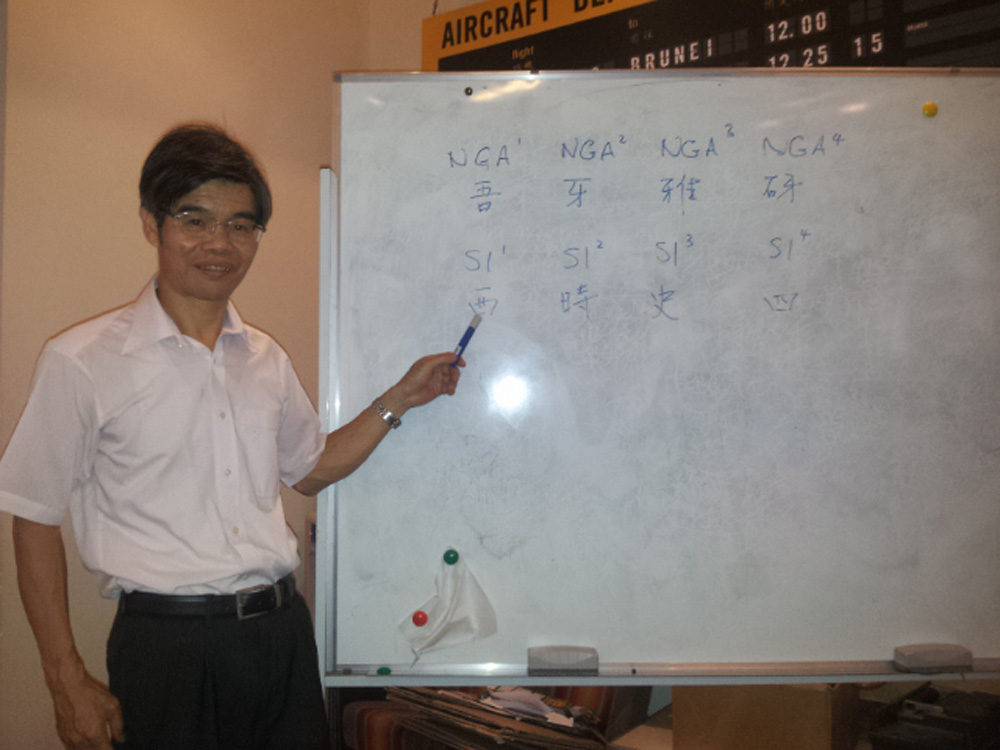 AIRCRAFT
flight
to
12.00
BRUNEI
12 25 15
NGA¹ NGA² NGA³ NGA⁴
吾 牙 雅 砑
SI¹ SI² SI³ SI⁴
西 時 史 四